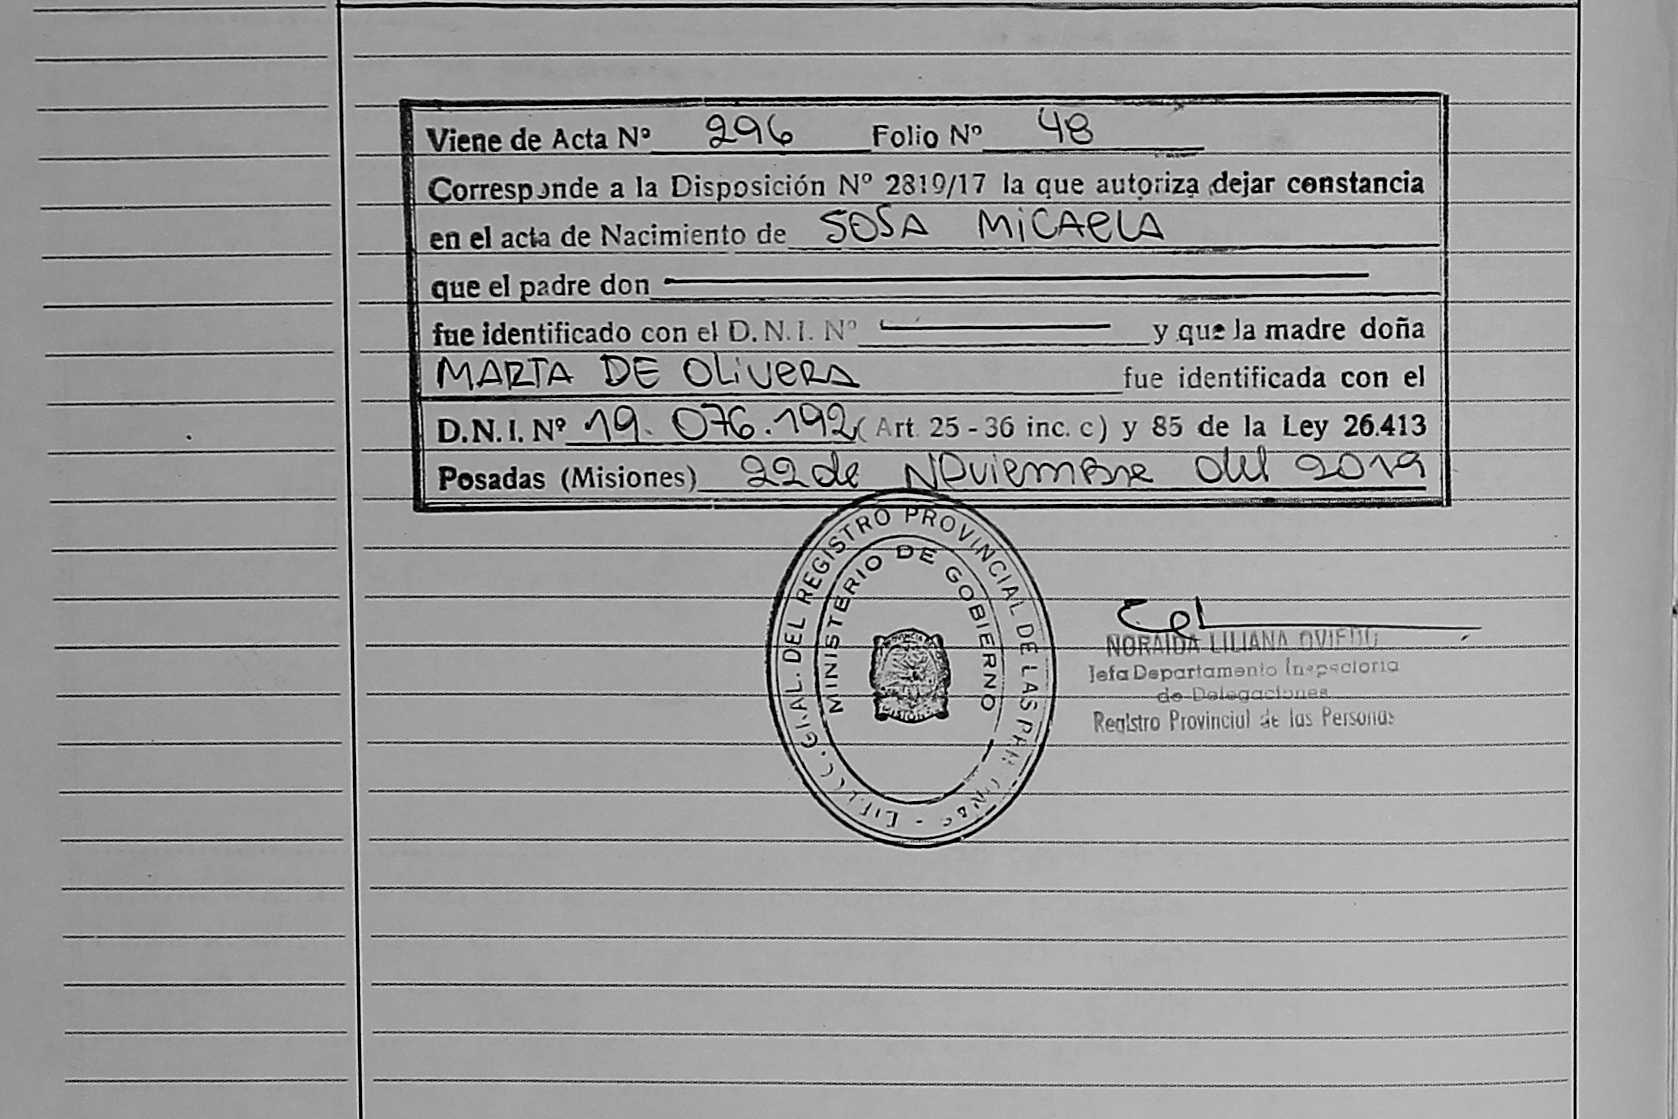 Viene de Acta Nº 296 Folio Nº 48
Corresponde a la Disposición Nº 2819/17 la que autoriza dejar constancia
en el acta de Nacimiento de SOSA MiCAeLA
que el padre don
fue identificado con el D.N.I. Nº y que la madre doña
MARTA DE OLiVeRA fue identificada con el
D.N.I. Nº 19.076.192 (Art. 25 - 36 inc. c) y 85 de la Ley 26.413
Posadas (Misiones) 22 de Noviembre del 2019
G.RAL. DEL REGISTRO PROVINCIAL DE LAS
MINISTERIO DE GOBIERNO
PROVINCIA DE
MISIONES
NORAIDA LILIANA OVIEDO
Jefa Departamento Inspectoria
de Delegaciones
Registro Provincial de las Personas